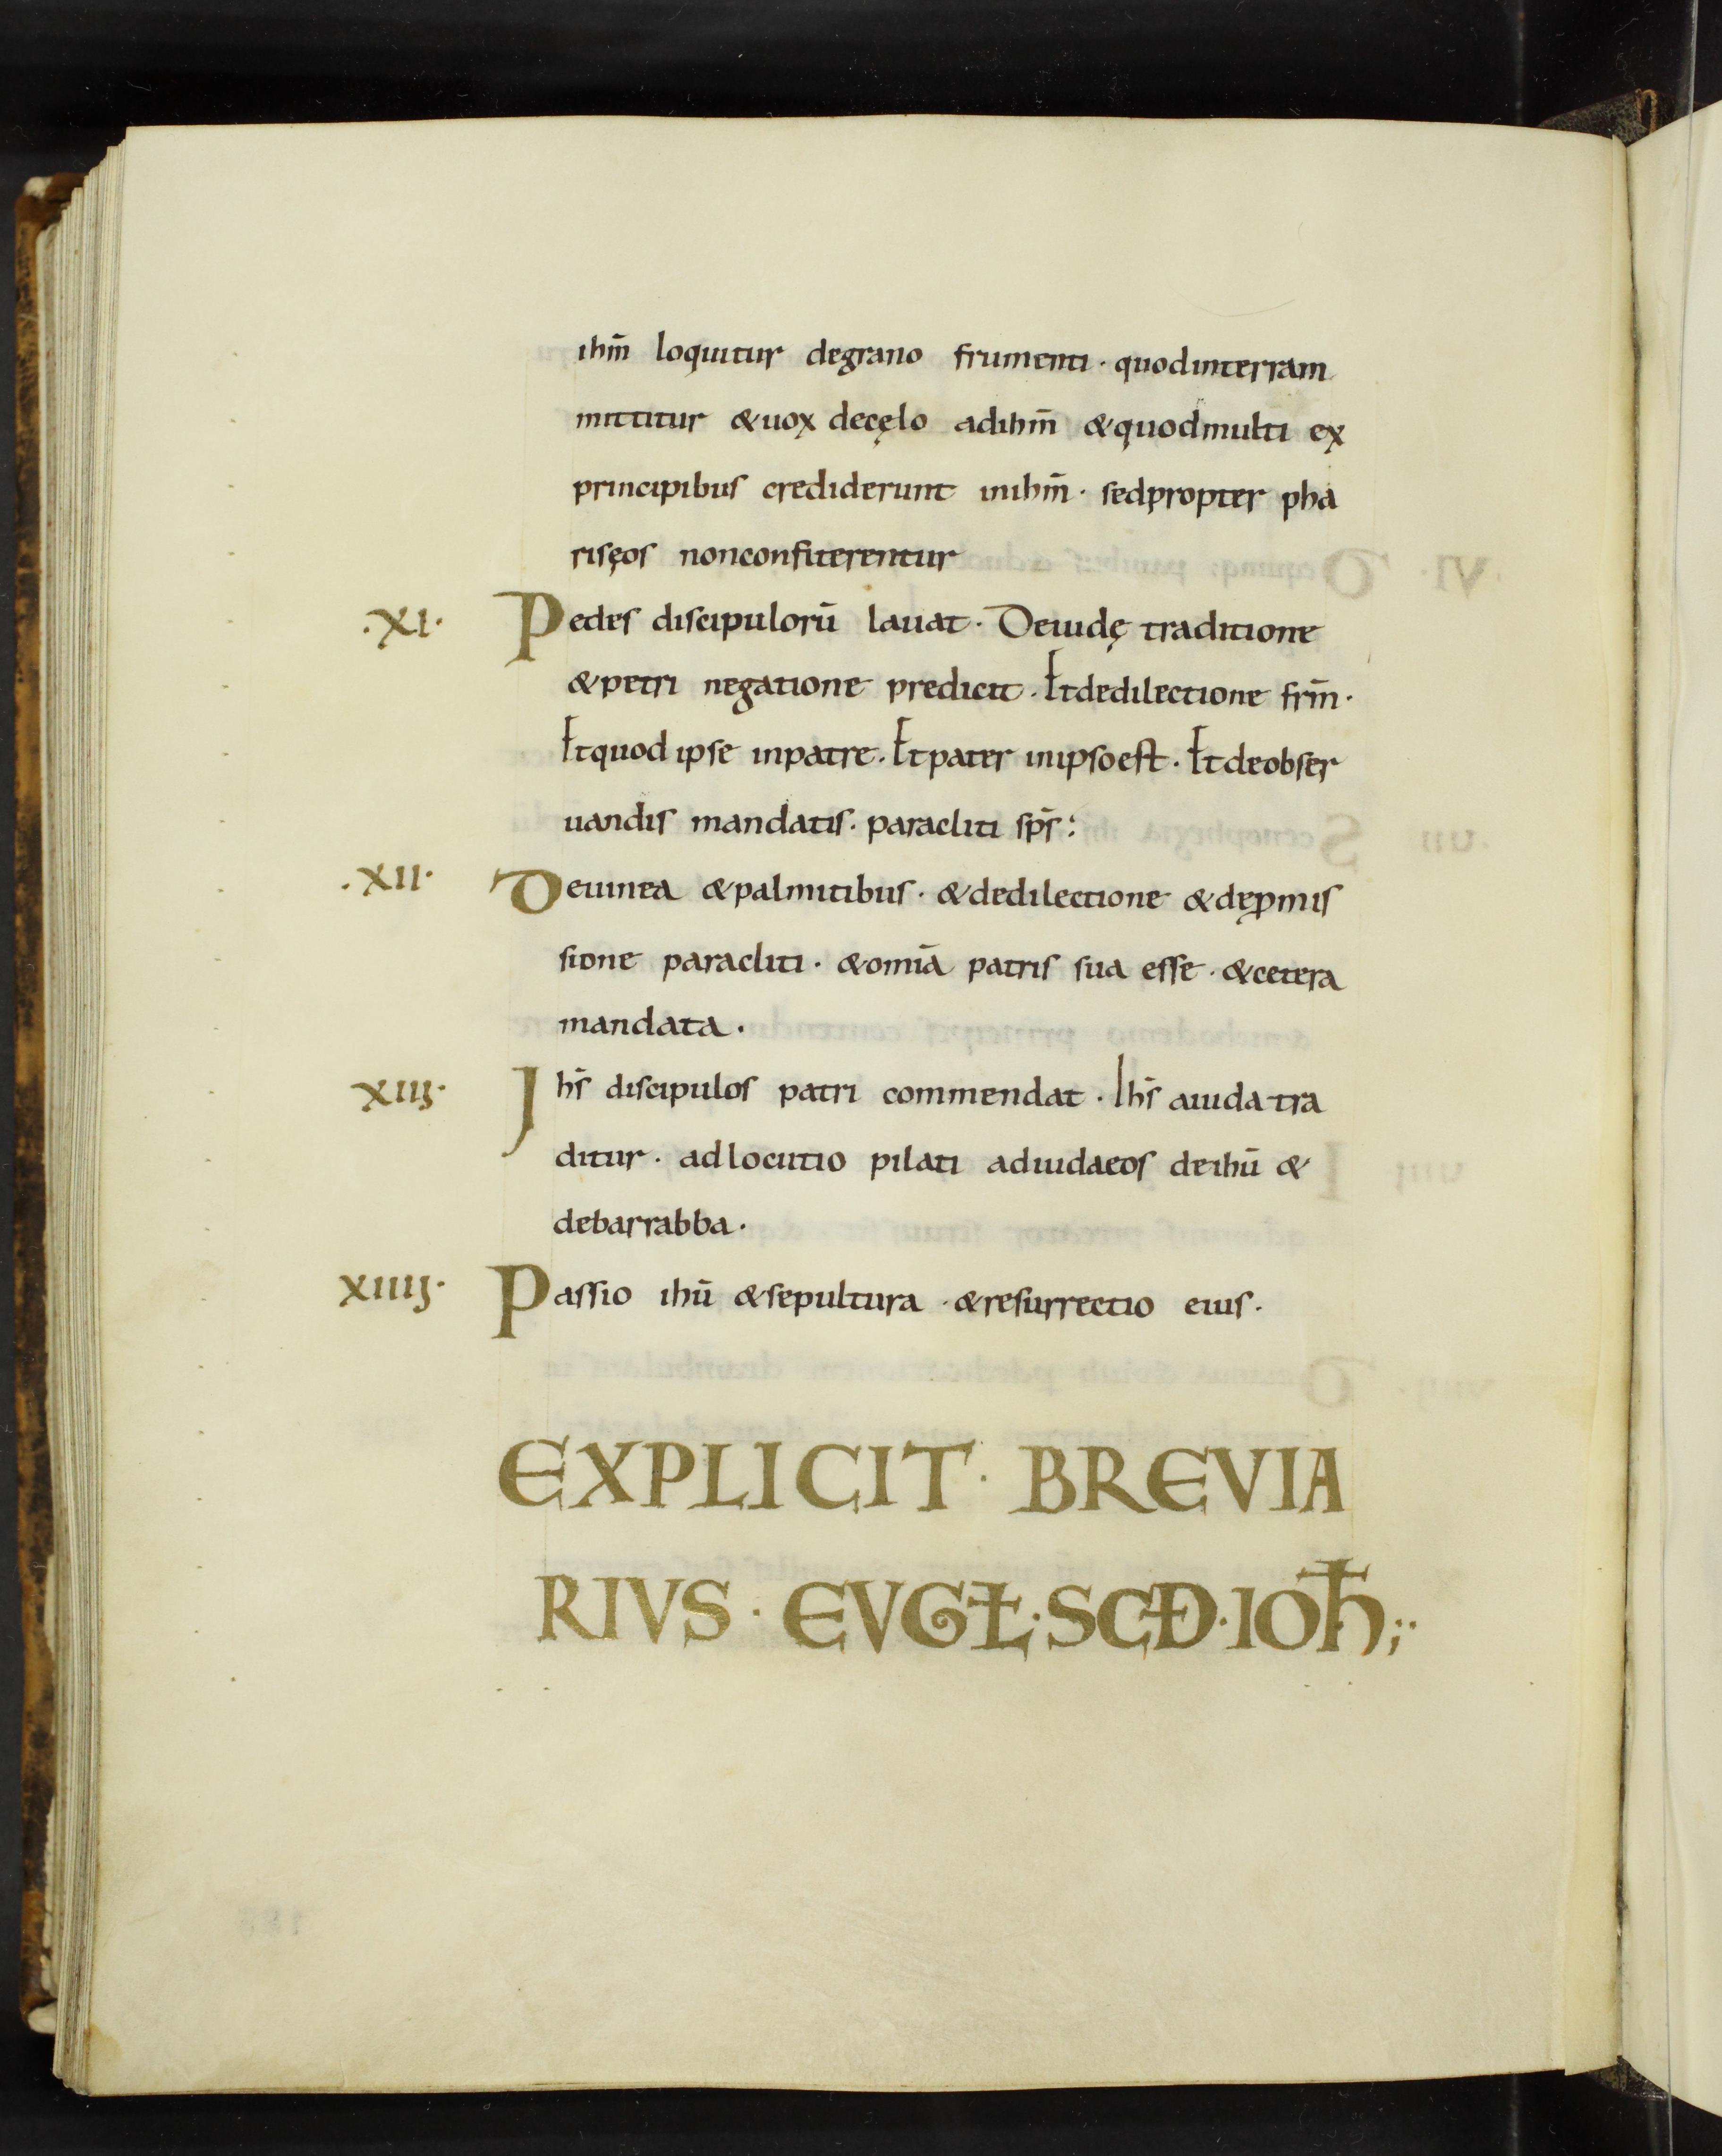 ihm̄ loquitur degrano frumenti · quodinterram
mittitur &uox decęlo adihm̄ &quodmulti ex
principibus crediderunt inihm̄ · sedpropter pha
risęos nonconfiterentur
·XI· Pedes discipulorū lauat · Deiudę traditione
&petri negatione predicit · Etdedilectione frm̄ ·
Etquod ipse inpatre · Etpater inipsoest · Et deobser
uandis mandatis · paracliti sps̄ :
·XII· Deuinea &palmitibus · &dedilectione &deꝓmis
sione paracliti · &omiā patris sua esse · &cetera
mandata ·
XIIJ· Jhs̄ discipulos patri commendat · Ihs̄ aiuda tra
ditur · adlocutio pilati adiudaeos deihū &
debarrabba ·
XIIIJ· Passio ihū &sepultura · &resurrectio eius ·
EXPLICIT · BREVIA
RIVS · EVGŁ · SCĐ · IOħ ;·